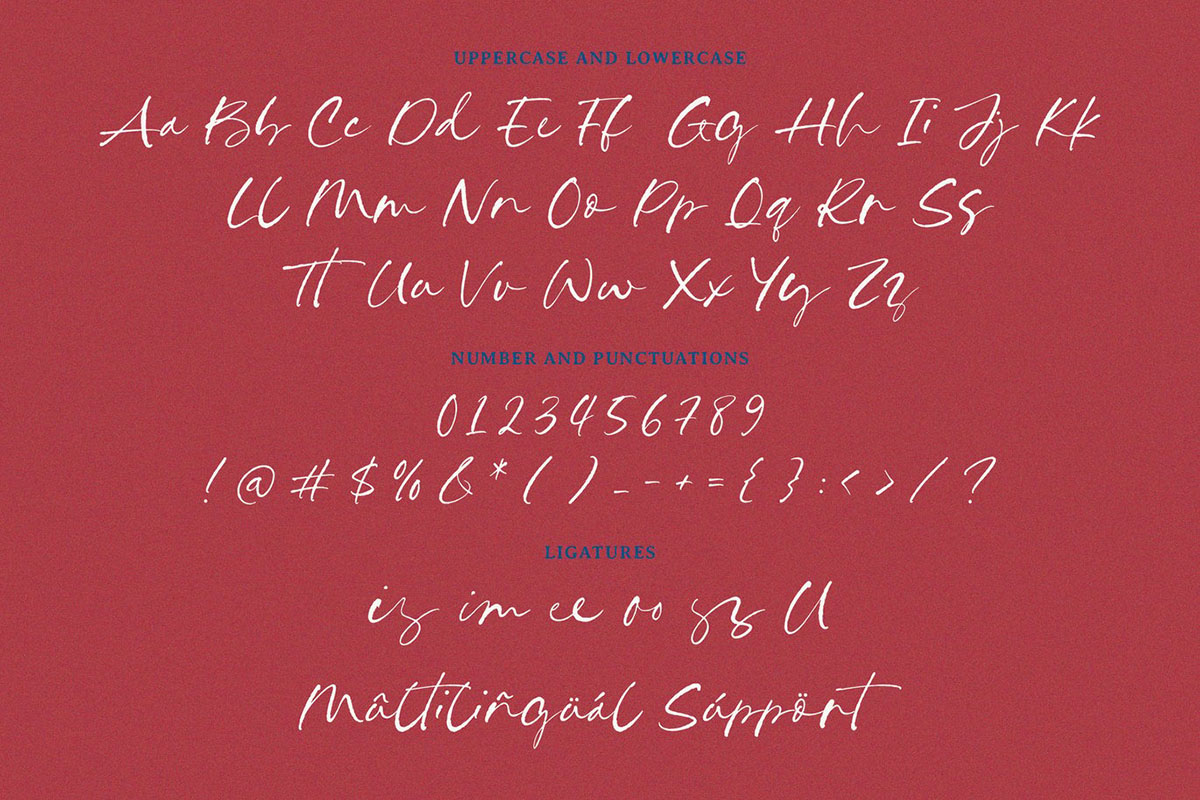 UPPERCASE AND LOWERCASE
Aa Bb Cc Dd Ee Ff Gg Hh Ii Jj Kk
Ll Mm Nn Oo Pp Qq Rr Ss
Tt Uu Vv Ww Xx Yy Zz
NUMBER AND PUNCTUATIONS
0123456789
!@#$%&*()_-+={}:<>/?
LIGATURES
is im ee oo ss ll
Mâltilîñgüál Súppört